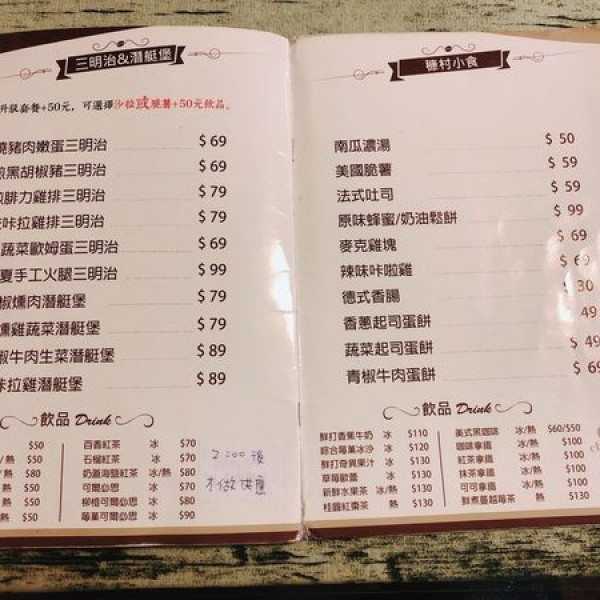 三明治&潛艇堡
升級套餐+50元，可選擇沙拉或脆薯+50元飲品。
燒豬肉嫩蛋三明治 $69
煎黑胡椒豬三明治 $69
腓力雞排三明治 $79
咔拉雞排三明治 $79
蔬菜歐姆蛋三明治 $69
夏手工火腿三明治 $99
椒燻肉潛艇堡 $79
燻雞蔬菜潛艇堡 $79
椒牛肉生菜潛艇堡 $89
咔拉雞潛艇堡 $89
飲品 Drink
$50
/熱 $50
/熱 $80
/熱 $50
/熱 $50
熱 $50
百香紅茶 冰 $70
石榴紅茶 冰 $70
奶蓋海鹽紅茶 冰/熱 $80
可爾必思 冰 $70
柳橙可爾必思 冰 $80
莓菓可爾必思 冰 $90
2:00後
才做供應
糠村小食
南瓜濃湯 $50
美國脆薯 $59
法式吐司 $59
原味蜂蜜/奶油鬆餅 $99
麥克雞塊 $69
辣味咔啦雞 $69
德式香腸 $30
香蔥起司蛋餅 $49
蔬菜起司蛋餅 $49
青椒牛肉蛋餅 $69
飲品 Drink
鮮打香蕉牛奶 冰 $110
綜合莓果冰沙 冰 $120
鮮打奇異果汁 冰 $130
草莓歐蕾 冰 $130
新鮮水果茶 冰/熱 $130
桂圓紅棗茶 熱 $130
美式黑咖啡 冰/熱 $60/$50
咖啡拿鐵 冰/熱 $100
紅茶拿鐵 冰/熱 $100
抹茶拿鐵 冰/熱 $100
可可拿鐵 冰/熱 $100
鮮煮蔓越莓茶 熱 $130